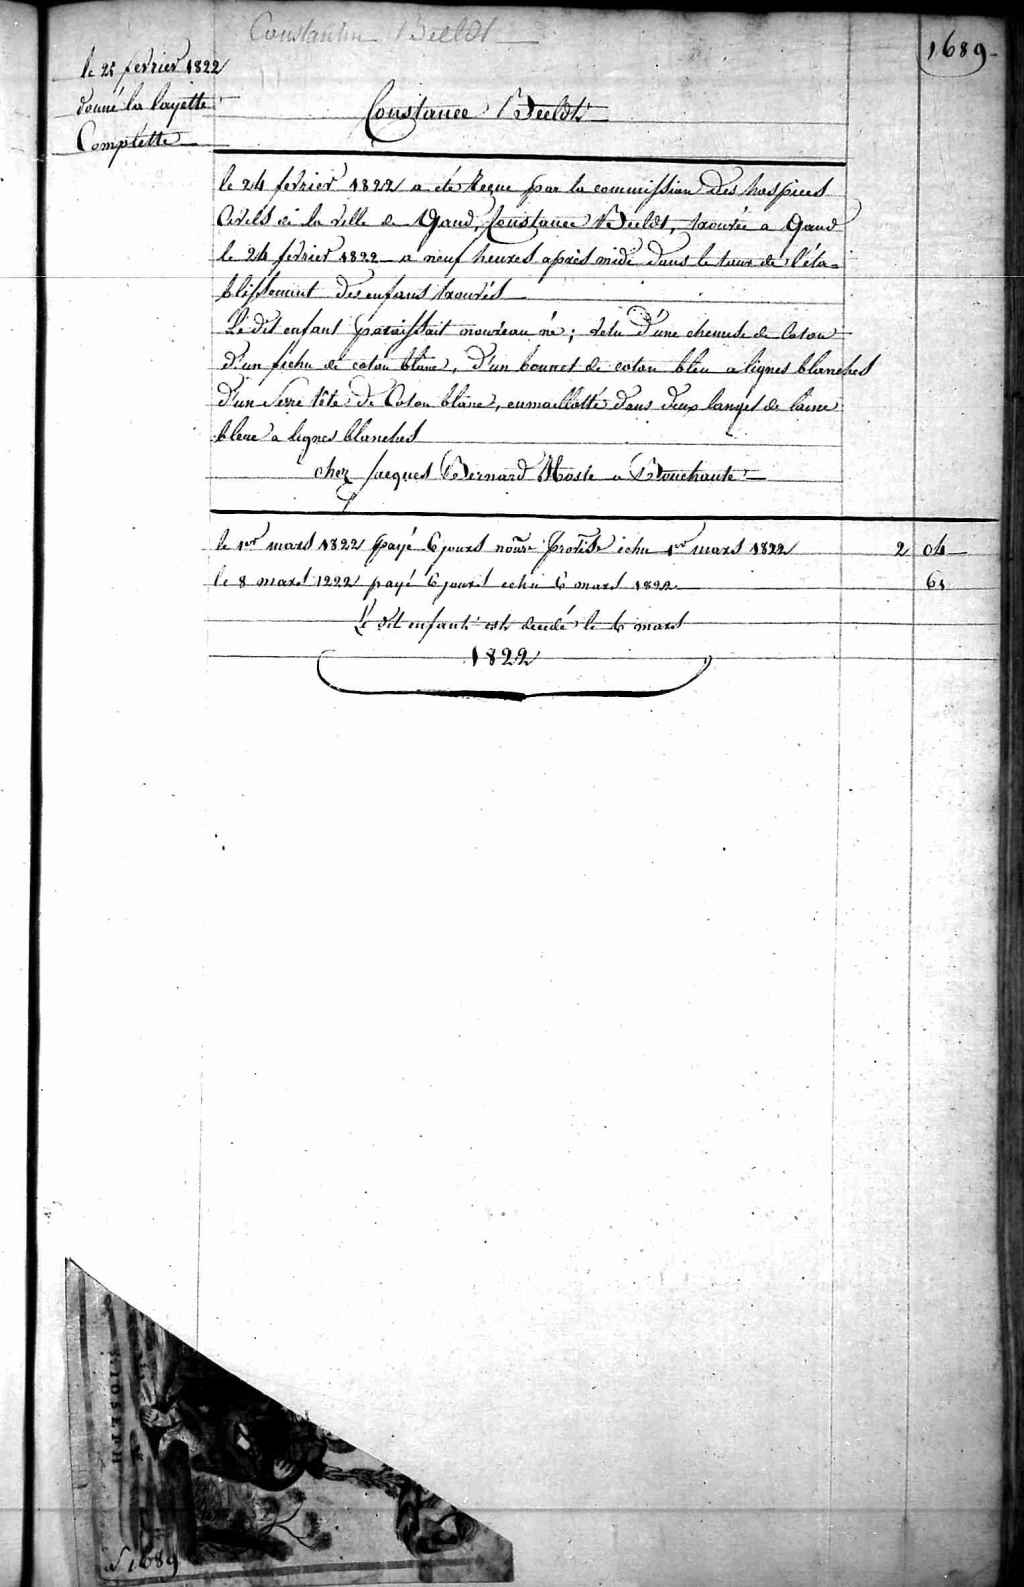 Constantin Beeldt
1689
le 25 fevrier 1822
donné la layette
Complette
Constance Beeldt
le 24 fevrier 1822 a été reçue par la commission des hospices
Civils de la ville de Gand, Constance Beeldt, trouvée a Gand
le 24 fevrier 1822 a neuf heures après midi dans le tour de l'éta=
blissement des enfans trouvés
Le dit enfant paraissait nouveau né; vetu d'une chemise de coton
d'un fichu de coton blanc, d'un bonnet de coton bleu a lignes blanches
d'un serre tête de Coton blanc, enmaillotté dans deux langes de laine
bleue a lignes blanches
chez Jacques Bernard Hoste a Bouchaute
le 1er mars 1822 payé 6 jours échu 1er mars 1822 2 04
le 8 mars 1222 payé 6 jours echu 6 mars 1822 61
Le dit enfant est decedé le 6 mars
1822
N 1689